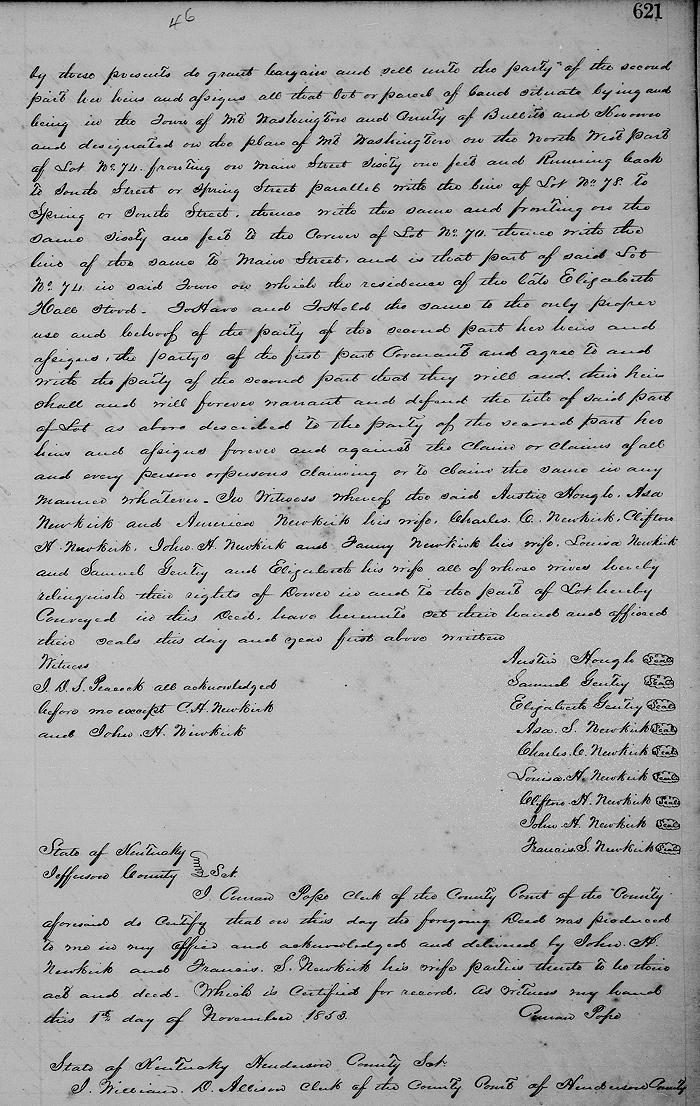 46
621
by these presents do grant bargain and sell unto the party of the second
part her heirs and assigns all that Lot or parcel of Land situate lying and
being in the Town of Mt Washington and County of Bullitt and Known
and designated on the plan of Mt Washington on the North West part
of Lot No. 74. fronting on Main Street Sixty one feet and Running back
to South Street or Spring Street parallel with the line of Lot No. 78. to
Spring or South Street. thence with the same and fronting on the
same sixty one feet to the Corner of Lot No. 70. thence with the
line of the same to Main Street, and is that part of said Lot
No. 74 in said Town on which the residence of the late Elizabeth
Hall stood. To Have and To Hold the same to the only proper
use and behoof of the party of the second part her heirs and
assigns, the partys of the first part Covenant and agree to and
with the party of the second part that they will and their heirs
shall and will forever warrant and defend the title of said part
of Lot as above described to the party of the second part her
heirs and assigns forever and against the Claim or Claims of all
and every person or persons claiming or to claim the same in any
manner whatever. In Witness whereof the said Austin Hough. Asa
Newkirk and America Newkirk his wife. Charles. C. Newkirk, Clifton
H. Newkirk. John. H. Newkirk and Fanny Newkirk his wife, Louisa Newkirk
and Samuel Gentry and Elizabeth his wife all of whose wives hereby
relinquish their rights of Dower in and to the part of Lot hereby
Conveyed in this Deed, have hereunto set their hand and affixed
their seals this day and year first above written
Witness
J. D. S. Peacock all acknowledged
before me except C. H. Newkirk
and John. H. Newkirk
Austin Hough Seal
Samuel Gentry Seal
Elizabeth Gentry Seal
Asa. S. Newkirk Seal
Charles. C. Newkirk Seal
Louisa. H. Newkirk Seal
Clifton. H. Newkirk Seal
John. H. Newkirk Seal
Francis. S. Newkirk Seal
State of Kentucky
Jefferson County Sct
I. Curran Pope Clerk of the County Court of the County
aforesaid do Certify that on this day the foregoing Deed was produced
to me in my office and acknowledged and delivered by John. H.
Newkirk and Francis. S. Newkirk his wife parties thereto to be their
act and deed. Which is Certified for record. As witness my hand
this 1st day of November 1853. Curran Pope
State of Kentucky Henderson County Sct.
I. William. D. Allison Clerk of the County Court of Henderson County